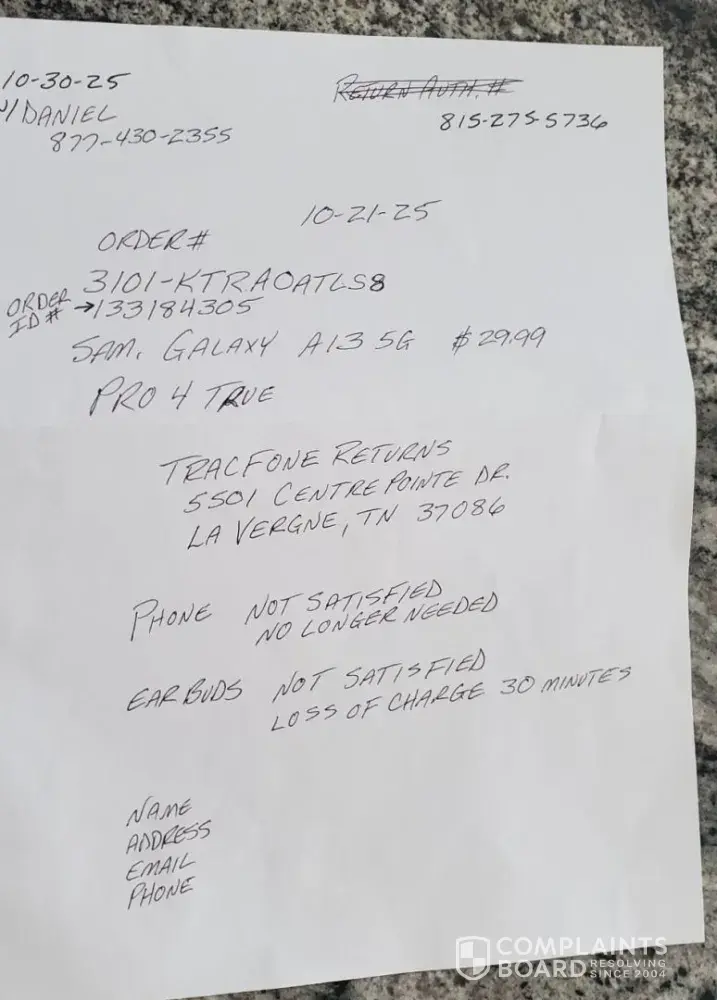 10-30-25
W/DANIEL
877-430-2355
RETURN AUTH. #
815-275-5736
10-21-25
ORDER #
3101-KTRAOATLS8
ORDER ID # → 133184305
SAM. GALAXY A13 5G $29.99
PRO 4 TRUE
TRACFONE RETURNS
5501 CENTRE POINTE DR.
LA VERGNE, TN 37086
PHONE NOT SATISFIED
NO LONGER NEEDED
EAR BUDS NOT SATISFIED
LOSS OF CHARGE 30 MINUTES
NAME
ADDRESS
EMAIL
PHONE
COMPLAINTS
BOARD RESOLVING SINCE 2004